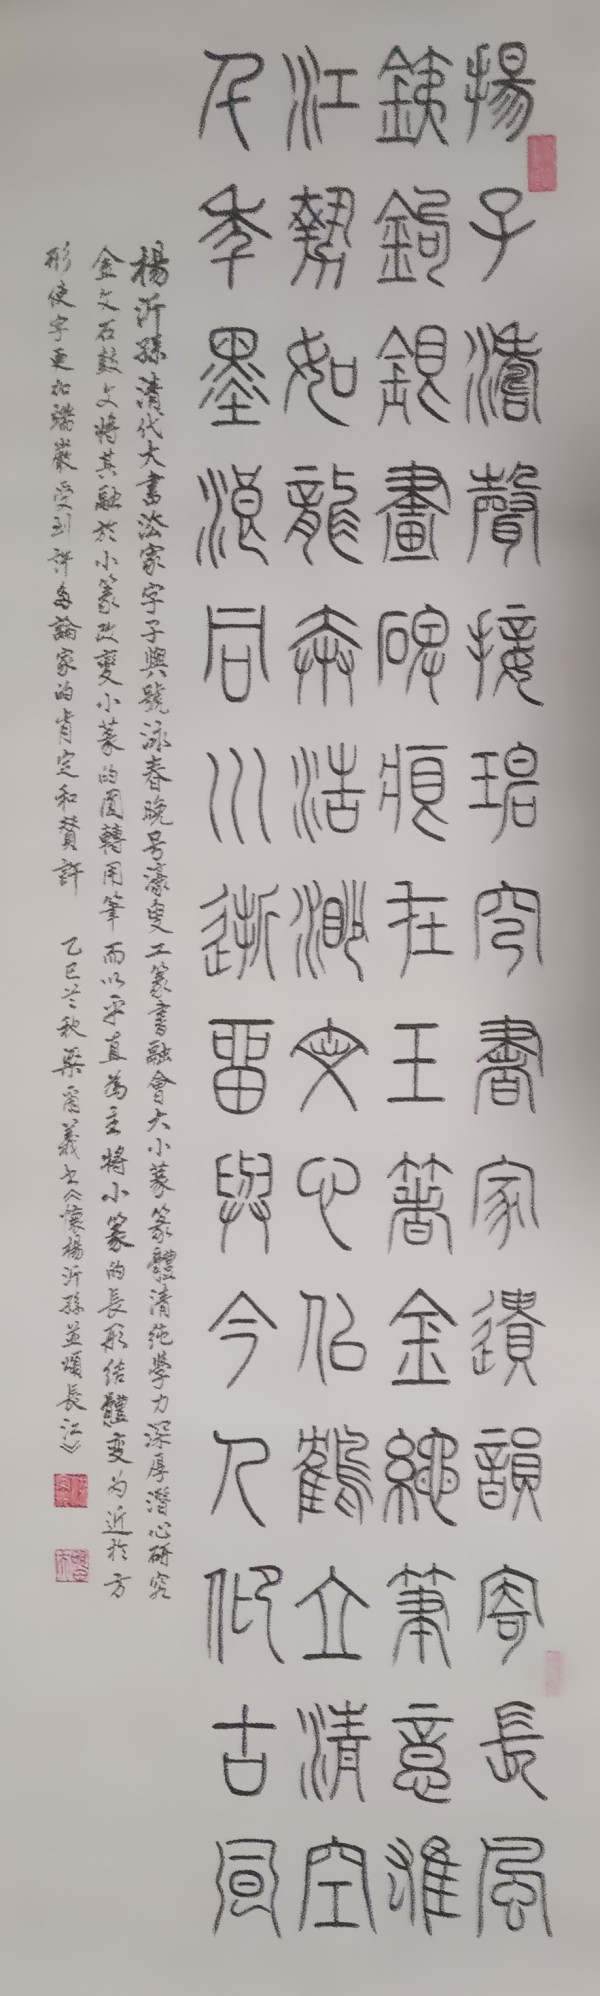 揚子濤聲接碧穹書家遺韻寄長風
鐵鉤銀畫碑痕在玉箸金繩筆意雄
江勢如龍奔浩渺文心似鶴立清空
千年墨浪同川逝留與今人仰古
楊沂孫清代大書法家字子與號泳春晚号濠叟工篆書融會大小篆篆體清純學力深厚潛心研究
金文石鼓文將其融於小篆改變小篆的圓轉用筆而以平直為主將小篆的長形結體變為近於方
形使字更加端嚴受到許多論家的肯定和贊許 乙巳之秋梁爾義書《懷楊沂孫並頌長江》